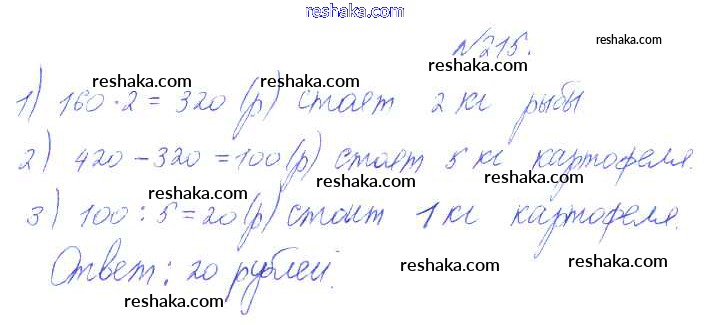 reshaka.com
№215. reshaka.com
reshaka.com reshaka.com
1) 160·2=320 (р) стоят 2 кг рыбы
reshaka.com reshaka.com
2) 420-320=100(р) стоят 5 кг картофеля.
reshaka.com reshaka.com
3) 100:5=20(р) стоит 1 кг картофеля.
reshaka.com reshaka.com
Ответ: 20 рублей.
reshaka.com reshaka.com reshaka.com
reshaka.com